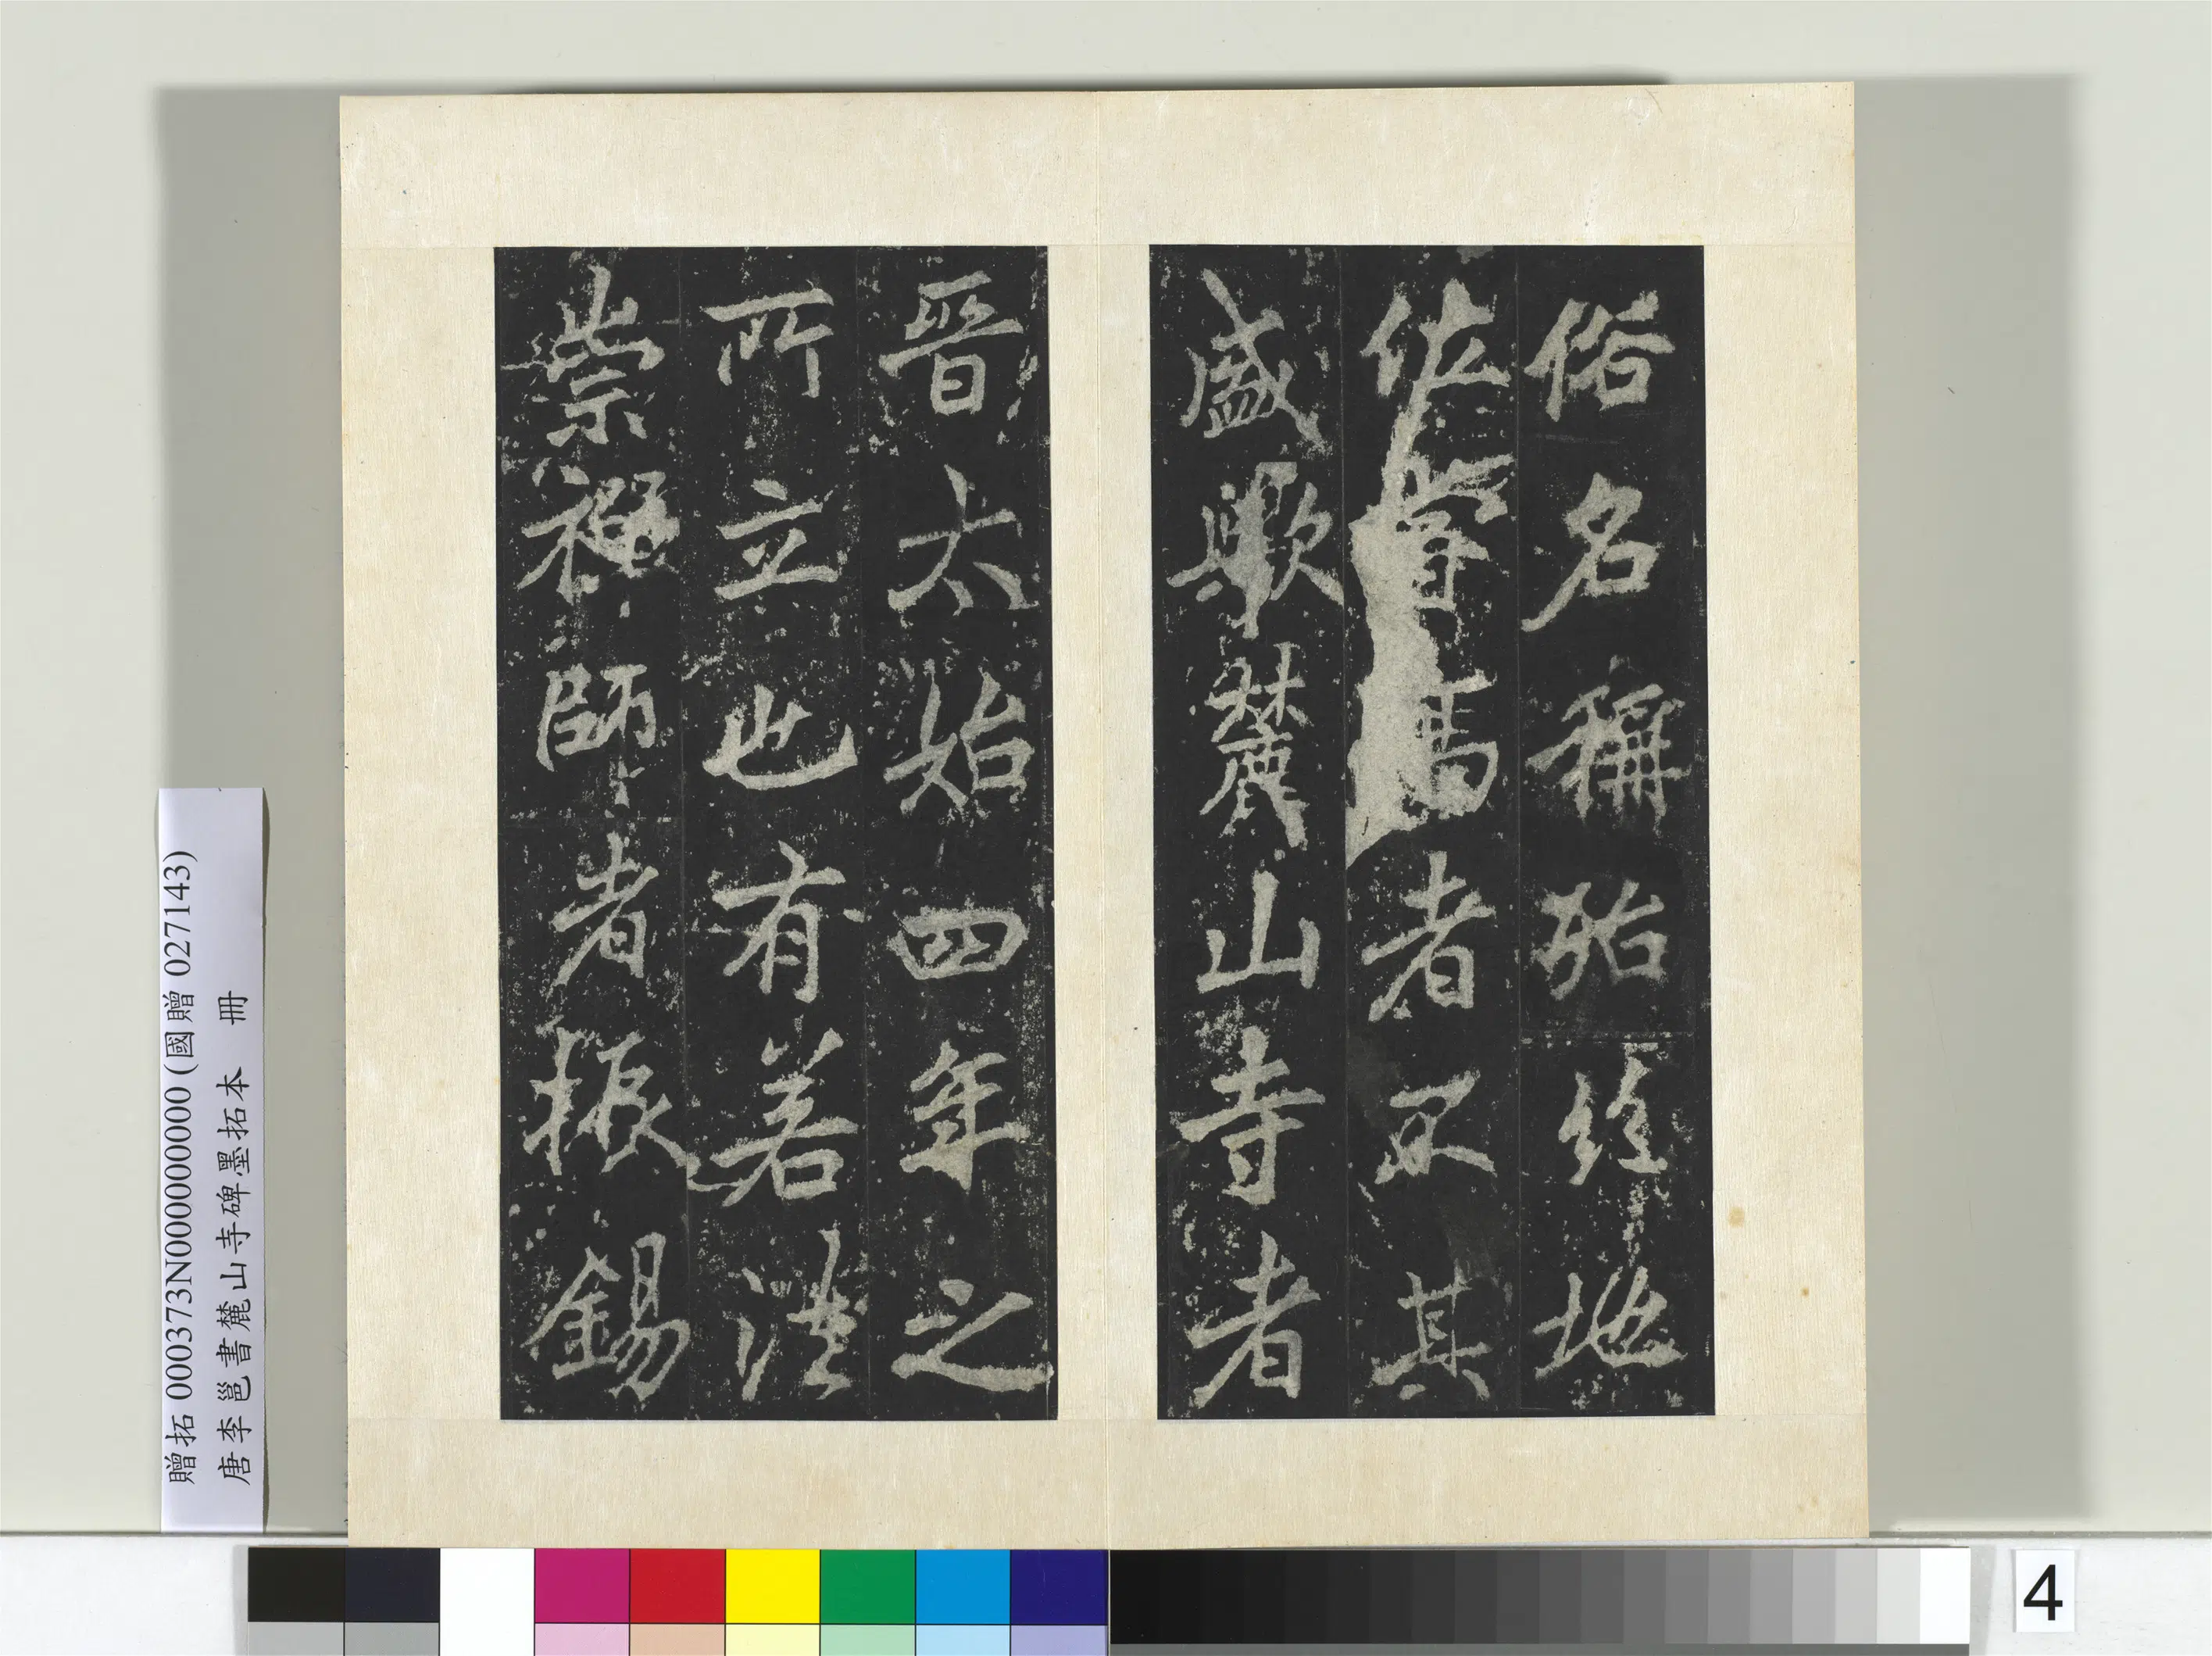 俗名稱殆絰地
位嘗焉者不其
盛歟麓山寺者
晉太始四年之
所立也有若法
崇禪師者振錫
贈拓 000373N000000000 (國贈 027143)
唐李邕書麓山寺碑墨拓本 冊
4